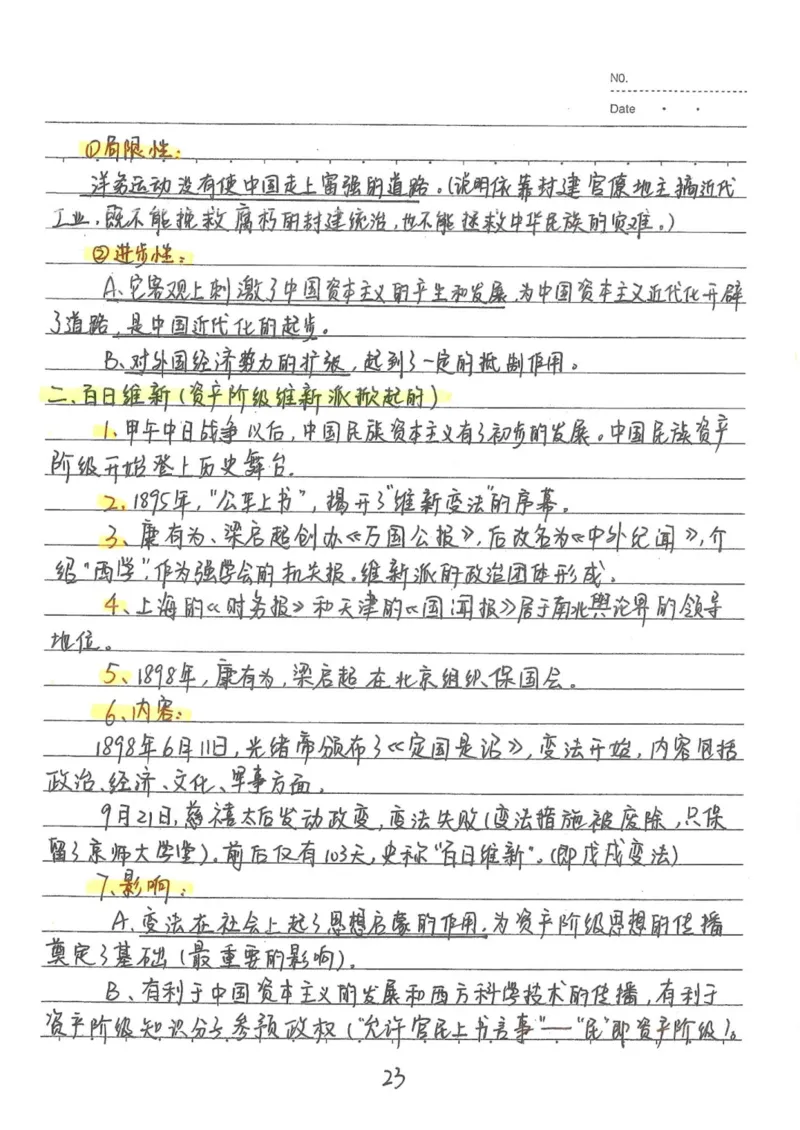 NO.
Date
①局限性:
洋务运动没有使中国走上富强的道路。(说明依靠封建官僚地主搞近代
工业,既不能挽救腐朽的封建统治,也不能拯救中华民族的灾难。)
②进步性:
A、它客观上刺激了中国资本主义的产生和发展,为中国资本主义近代化开辟
了道路,是中国近代化的起步。
B、对外国经济势力的扩张,起到了一定的抵制作用。
二、百日维新(资产阶级维新派掀起的)
1、甲午中日战争以后,中国民族资本主义有了初步的发展。中国民族资产
阶级开始登上历史舞台.
2、1895年,"公车上书",揭开了"维新变法"的序幕。
3、康有为、梁启超创办《万国公报》,后改名为《中外纪闻》,介
绍"西学",作为强学会的机关报。维新派的政治团体形成.
4、上海的《时务报》和天津的《国闻报》居于南北舆论界的领导
地位。
5、1898年,康有为,梁启超在北京组织保国会。
6、内容:
1898年6月11日,光绪帝颁布了《定国是诏》,变法开始,内容包括
政治、经济、文化、军事方面.
9月21日,慈禧太后发动政变,变法失败(变法措施被废除,只保
留了京师大学堂)。前后仅有103天,史称"百日维新"。(即戊戌变法)
7、影响:
A、变法在社会上起了思想启蒙的作用,为资产阶级思想的传播
奠定了基础(最重要的影响)。
B、有利于中国资本主义的发展和西方科学技术的传播,有利于
资产阶级知识分子参预政权("允许官民上书言事"—"民"即资产阶级)。
23